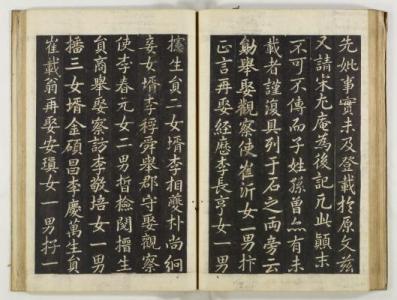 先妣事實未及登載於原文玆
又請宋尤庵為後記凡此顛末
不可不傳而子姓孫曾亦有未
載者謹復具列于石之兩旁云
勛舉娶觀察使崔沂女一男抃
正言再娶經歷李長亨女一男
攇生員二女壻李相爽朴尚絅
妾女壻李稃舜舉郡守娶觀察
使李春元女二男晳檢閱㩜生
員商舉娶察訪李敬培女一男
播三女壻金碩昌李慶萬生員
崔載翁再娶安瑱女一男抙一